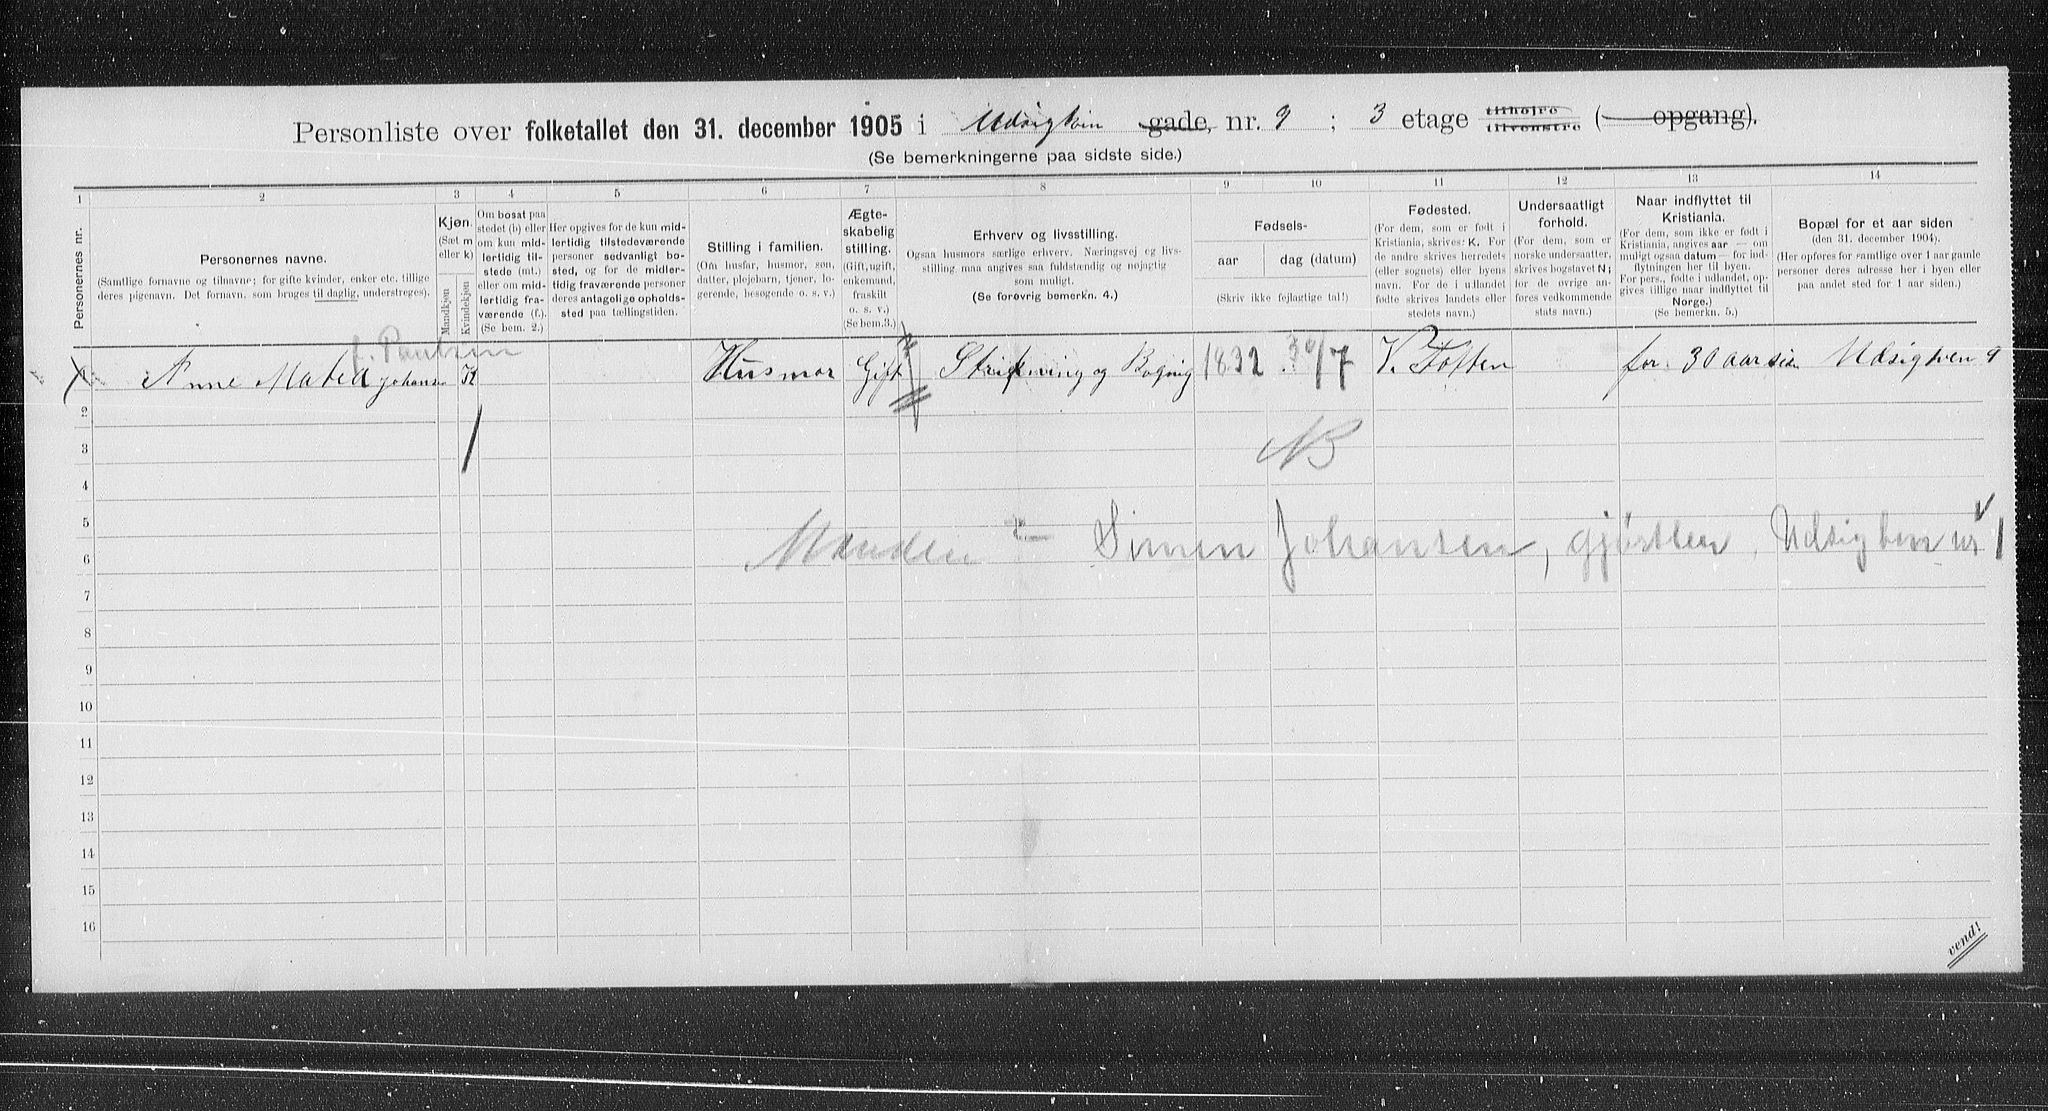 Personliste over folketallet den 31. december 1905 i Udsigtvin gade, nr. 9 ; 3 etage tilhøjre tilvenstre ( opgang).
(Se bemerkningerne paa sidste side.)
1 2 3 4 5 6 7 8 9 10 11 12 13 14
Personernes nr.
Personernes navne.
(Samtlige fornavne og tilnavne; for gifte kvinder, enker etc. tillige
deres pigenavn. Det fornavn, som bruges til daglig, understreges).
Kjøn.
(Sæt m
eller k)
Mandkjøn
Kvindekjøn
Om bosat paa
stedet (b) eller
om kun mid-
lertidig til-
stede (mt.)
eller om mid-
lertidig fra-
værende (f.).
(Se bem. 2.)
Her opgives for de kun mid-
lertidig tilstedeværende
personer sedvanligt bo-
sted, og for de midler-
tidig fraværende personer
deres antagelige opholds-
sted paa tællingstiden.
Stilling i familien.
(Om husfar, husmor, søn,
datter, plejebarn, tjener, lo-
gerende, besøgende o. s. v.)
Ægte-
skabelig
stilling.
(Gift, ugift,
enkemand,
fraskilt
o. s. v.)
(Se bem. 3.)
Erhverv og livsstilling.
Ogsaa husmors særlige erhverv. Næringsvej og livs-
stilling maa angives saa fuldstændig og nøjagtig
som muligt.
(Se forøvrig bemerkn. 4.)
Fødsels-
aar dag (datum)
(Skriv ikke fejlagtige tal!)
Fødested.
(For dem, som er født i
Kristiania, skrives: K. For
de andre skrives herredets
(eller sognets) eller byens
navn. For de i udlandet
fødte skrives landets eller
stedets navn.)
Undersaatligt
forhold.
(For dem, som er
norske undersaatter,
skrives bogstavet N;
for de øvrige an-
føres vedkommende
stats navn.)
Naar indflyttet til
Kristiania.
(For dem, som ikke er født i
Kristiania, angives aar — om
muligt ogsaa datum — for ind-
flytningen her til byen.
For pers., fødte i udlandet, op-
gives tillige naar indflyttet til
Norge.)
(Se bemerkn. 5.)
Bopæl for et aar siden
(den 31. december 1904).
(Her opføres for samtlige over 1 aar gamle
personer deres adresse her i byen eller
paa andet sted for 1 aar siden.)
f. Paulsen
1 Anne Johans K Husmor Gift Strikning og 1832 30/7 V. Toften for 30 aar sien Udsigtven 9
2
3
NB
4
5
Manden Simen Johansen, gjørtler, Udsigtven nr 1
6
7
8
9
10
11
12
13
14
15
16
vend!